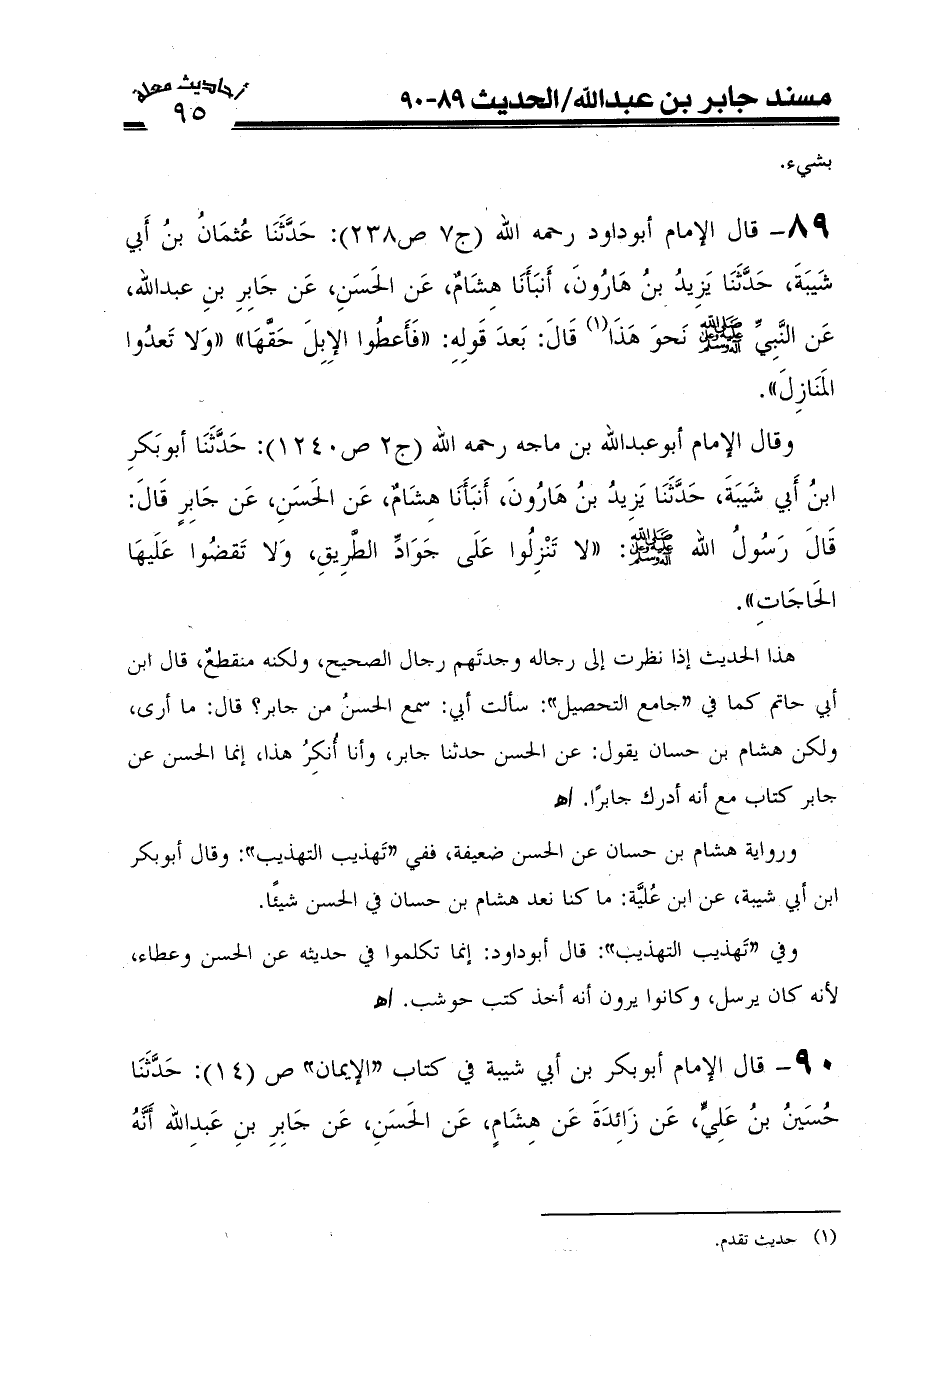 مسند جابر بن عبدالله/الحديث ٨٩-٩٠
أحاديث معلة
٩٥
بشيء.
٨٩- قال الإمام أبوداود رحمه الله (ج٧ ص٢٣٨): حَدَّثَنَا عُثمَانُ بنُ أَبي
شَيبَةَ، حَدَّثَنَا يَزِيدُ بنُ هَارُونَ، أَنبَأَنَا هِشَامٌ، عَنِ الحَسَنِ، عَن جَابِرِ بنِ عبدالله،
عَنِ النَّبِيِّ ﷺ نَحوَ هَذَا(١) قَالَ: بَعدَ قَولِهِ: «فَأَعطُوا الإِبِلَ حَقَّهَا» «وَلا تَعدُوا
المَنَازِلَ».
وقال الإمام أبوعبدالله بن ماجه رحمه الله (ج٢ ص١٢٤٠): حَدَّثَنَا أبوبَكرِ
ابنُ أَبي شَيبَةَ، حَدَّثَنَا يَزِيدُ بنُ هَارُونَ، أَنبَأَنَا هِشَامٌ، عَنِ الحَسَنِ، عَن جَابِرٍ قَالَ:
قَالَ رَسُولُ الله ﷺ: «لا تَنْزِلُوا عَلَى جَوَادِّ الطَّرِيقِ، وَلا تَقضُوا عَلَيهَا
الحَاجَاتِ».
هذا الحديث إذا نظرت إلى رجاله وجدتَهم رجال الصحيح، ولكنه منقطعٌ، قال ابن
أبي حاتم كما في «جامع التحصيل»: سألت أبي: سمع الحسنُ من جابر؟ قال: ما أرى،
ولكن هشام بن حسان يقول: عن الحسن حدثنا جابر، وأنا أُنكِرُ هذا، إنما الحسن عن
جابر كتاب مع أنه أدرك جابرًا. اﻫ
ورواية هشام بن حسان عن الحسن ضعيفة، ففي «تَهذيب التهذيب»: وقال أبوبكر
ابن أبي شيبة، عن ابن عُليَّة: ما كنا نعد هشام بن حسان في الحسن شيئًا.
وفي «تَهذيب التهذيب»: قال أبوداود: إنما تكلموا في حديثه عن الحسن وعطاء،
لأنه كان يرسل، وكانوا يرون أنه أخذ كتب حوشب. اﻫ
٩٠- قال الإمام أبوبكر بن أبي شيبة في كتاب «الإيمان» ص (١٤): حَدَّثَنَا
حُسَينُ بنُ عَلِيٍّ، عَن زَائِدَةَ عَن هِشَامٍ، عَنِ الحَسَنِ، عَن جَابِرِ بنِ عَبدِالله أَنَّهُ
(١) حديث تقدم.